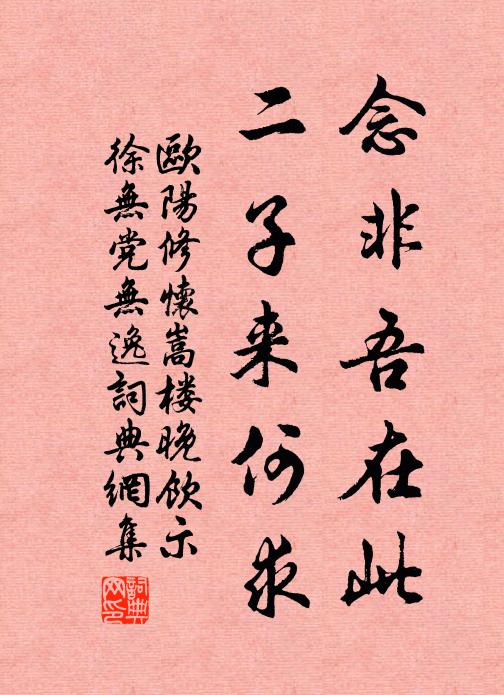 念非吾在此
二子来何求
歐陽修懷嵩楼晚飲示
徐無党無逸詞典網集
詞典
网印